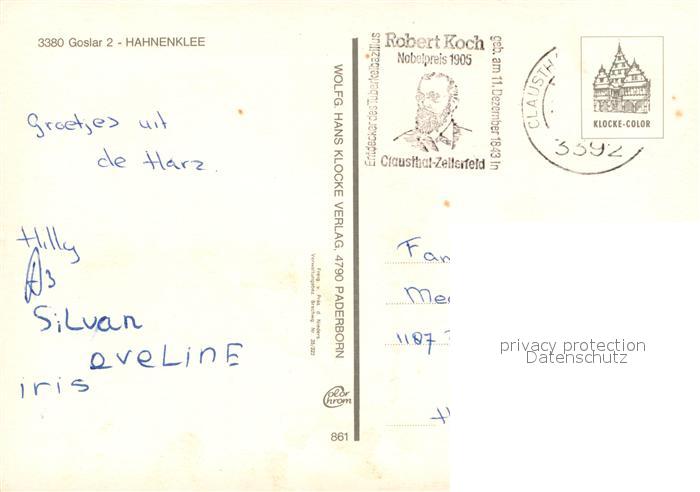 3380 Goslar 2 - HAHNENKLEE
Groetjes uit
de Harz.
Hilly
Silvan
eveline
iris
WOLFG. HANS KLOCKE VERLAG, 4790 PADERBORN
Freig. v. Präs. d. Nieders.
Verwaltungsbez. Brschwg Nr
color
chrom
861
Entdecker der Tuberkelbazillus
Robert Koch
Nobelpreis 1905
geb. am 11. Dezember 1843 in
Clausthal-Zellerfeld
CLAUSTH
3392
KLOCKE-COLOR
Fam
Mee
1107
privacy protection
Datenschutz